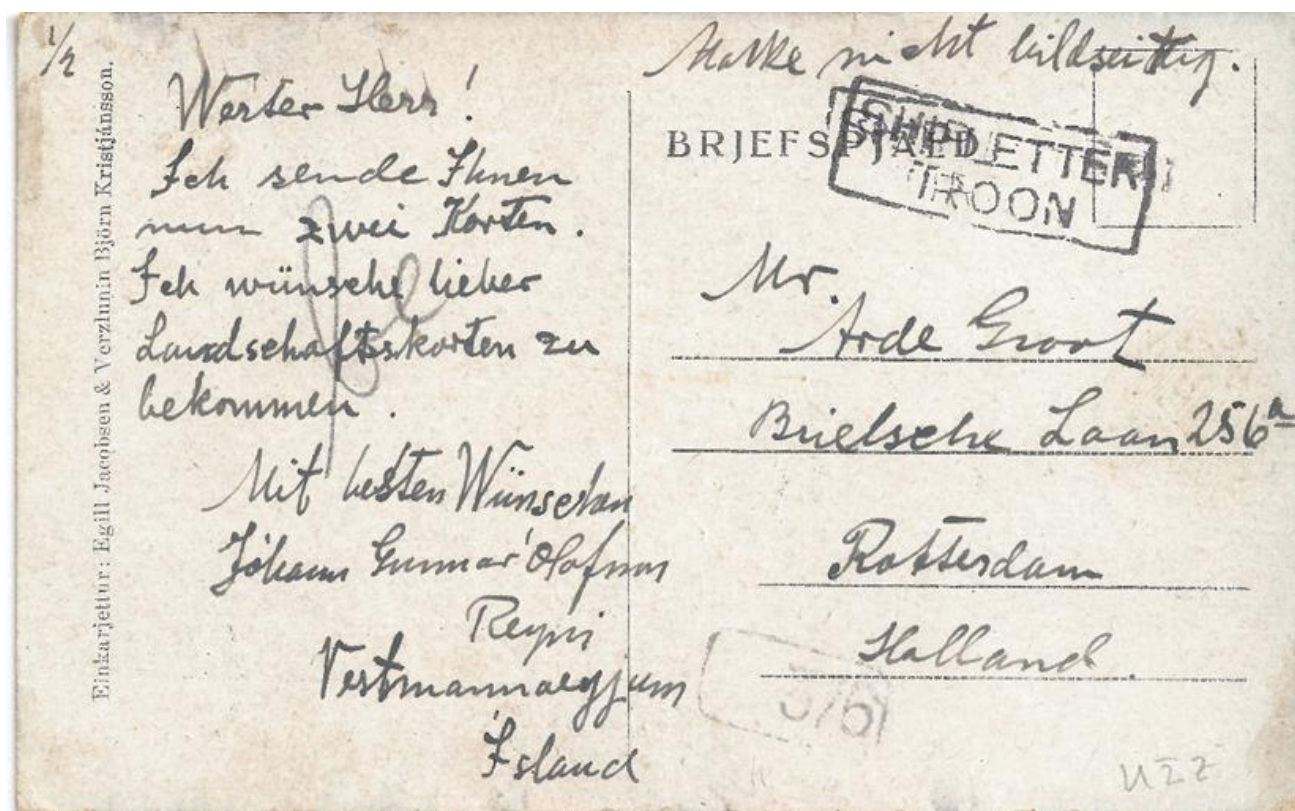 1/2
Einkarjettur: Egill Jacobsen & Verzlunin Björn Kristjánsson.
Werter Herr!
Ich sende Ihnen
nun zwei Korten.
Ich wünsche lieber
Landschaftskorten zu
bekommen.
Mit besten Wünschen
Jóhann Gunnar Ólafsson
Reyni
Vestmannaeyjum
Ísland
Marke nicht bildseitig.
BRJEFSPJALD
SHIP LETTER
TROON
Mr.
Arde Groot
Brielsche Laan 256a
Rotterdam
Holland